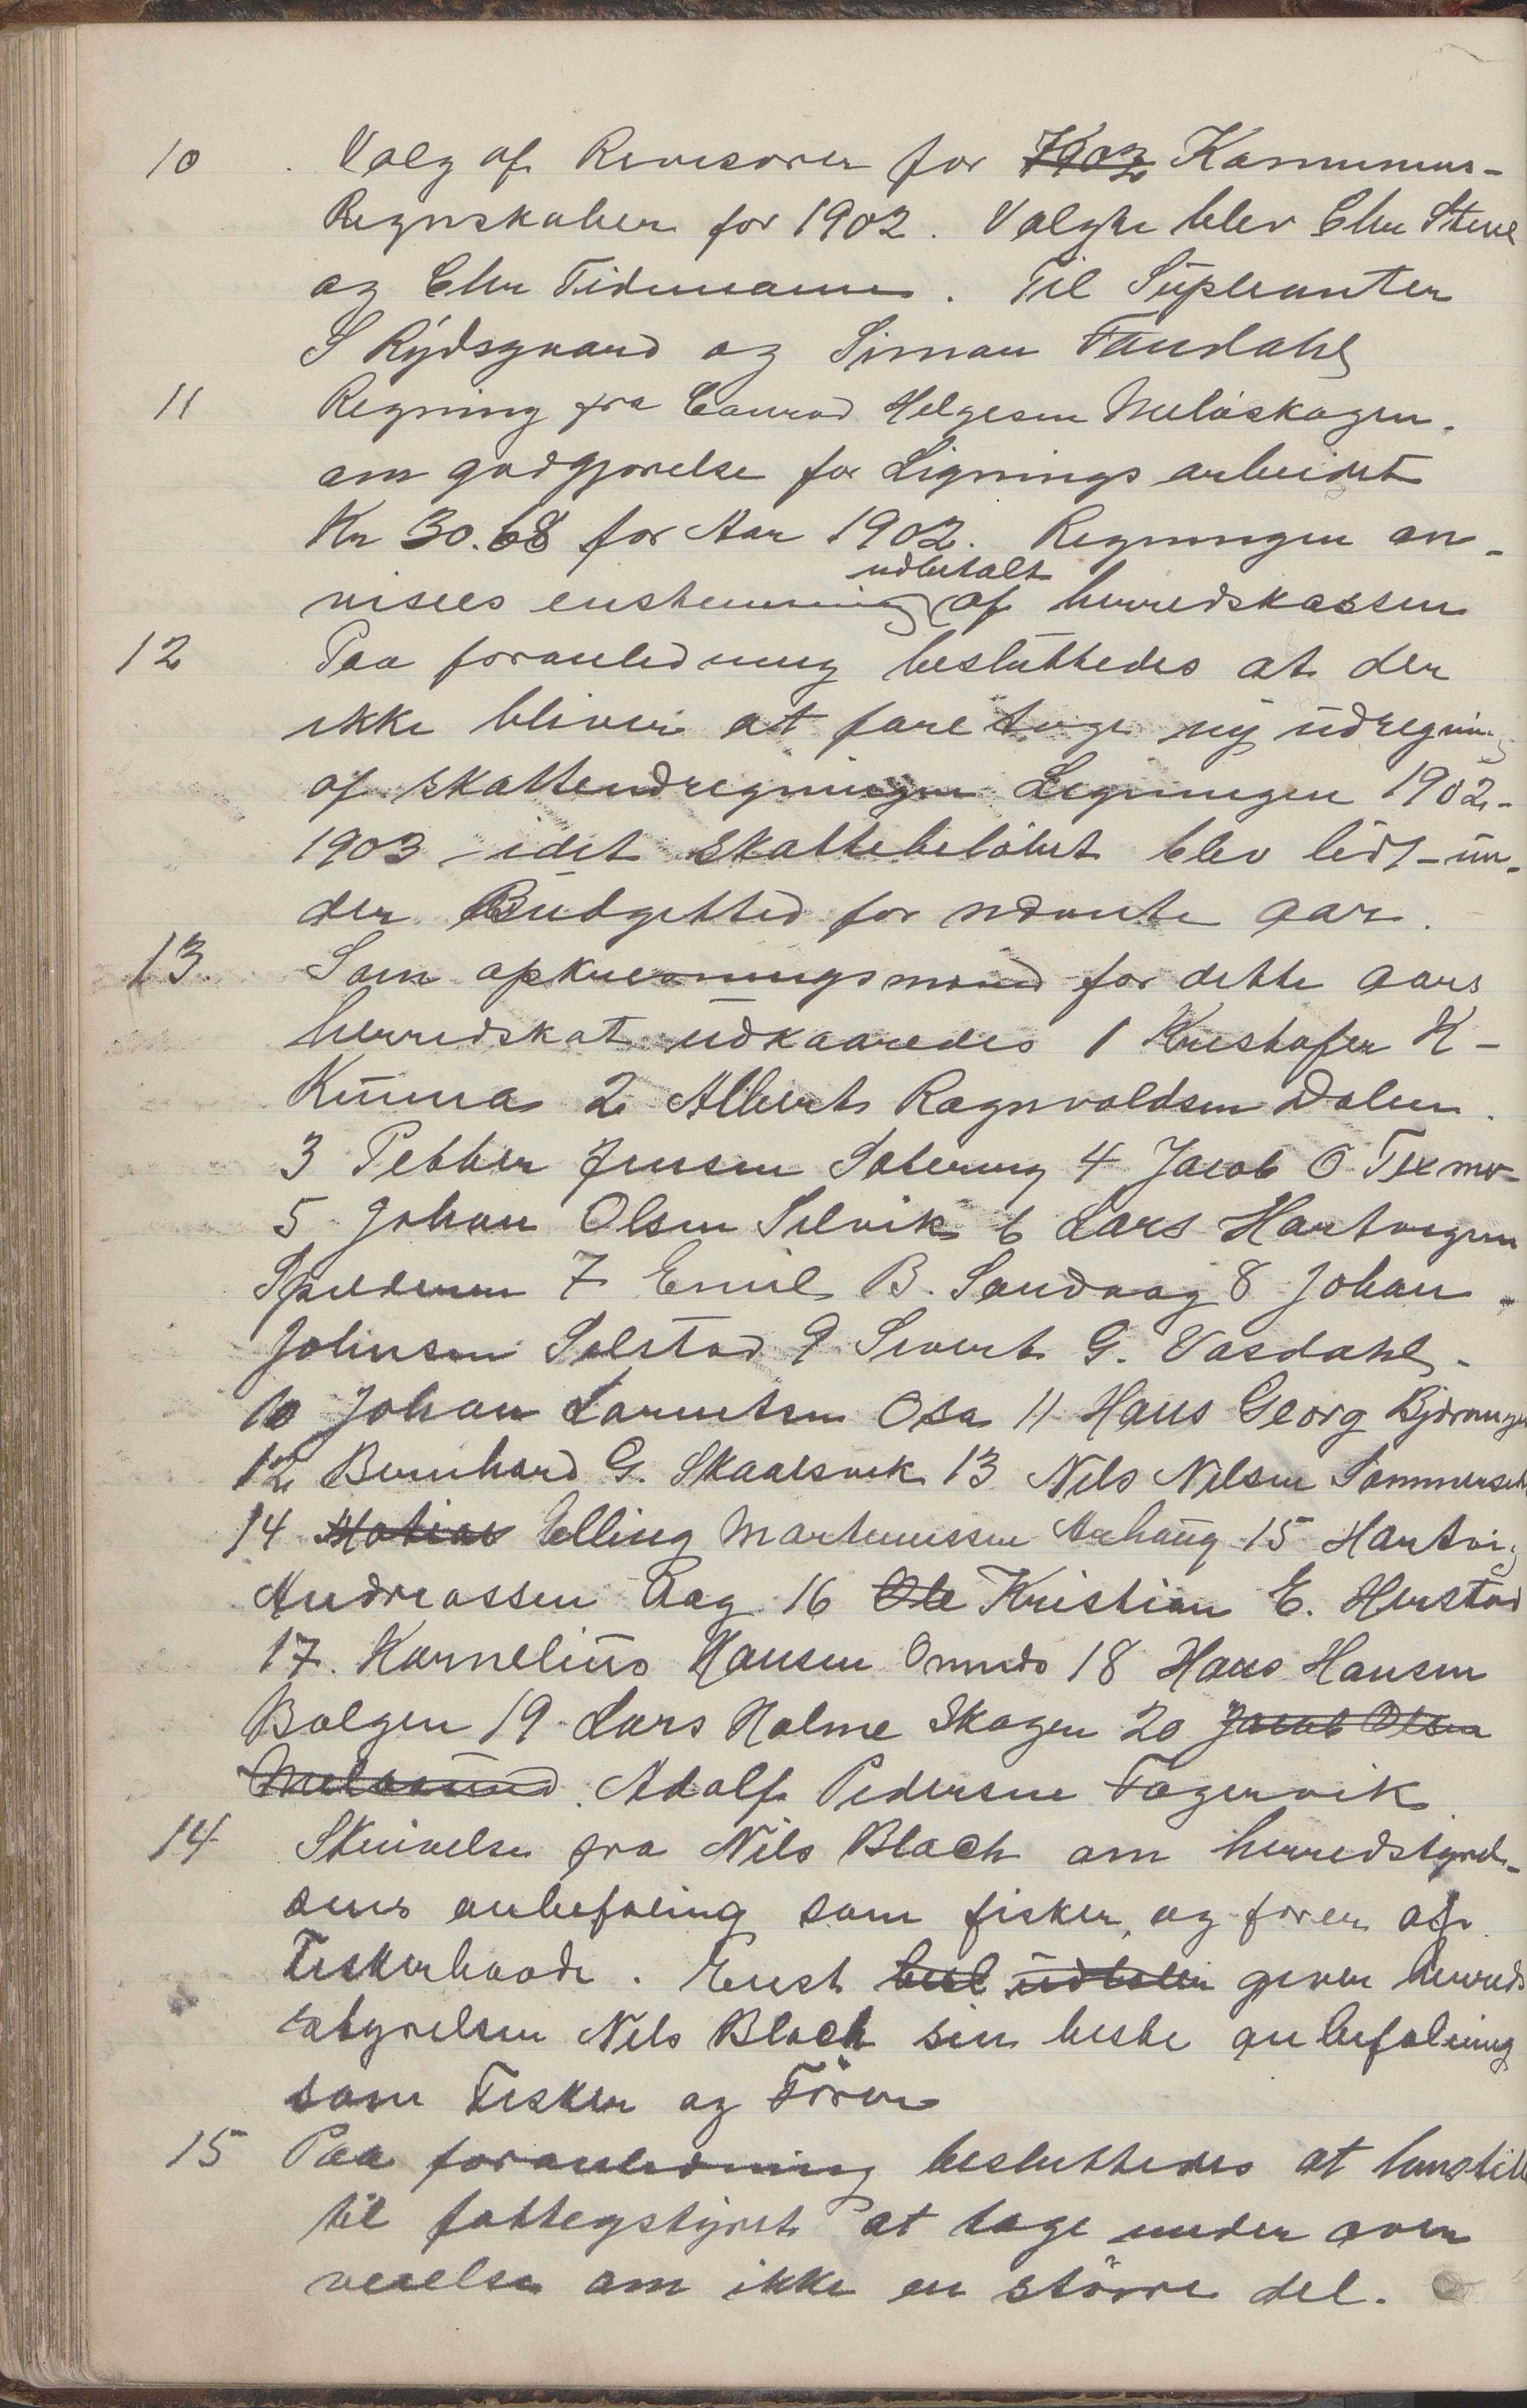 10 . Valg af Revisorer for 1902 Kommune-
Regnskaber for 1902. Valgte blev Chr Steve
og Chr Tidemann. Til Supleanter
S Rydsgaard og Simon Fandahl
11 Regning fra Conrad Helgesen Meløskogen.
om godgjørelse for Ligningsarbeidet
Kr 30.68 for Aar 1902. Regningen an-
udbetalt
vises enstemmig af herredskassen
12 Paa foranledning besluttedes at der
ikke bliver at foretage ny udregning
af skatteudregningen Ligningen 1902-
1903 – idet skattebeløbet blev lidt un-
der Budgetted for nævnte aar.
13. Som opkrevningsmænd for dette aars
herredskat udkaaredes 1 Kristofer K-
Kunna 2 Albert Ragnvaldsen Dalen.
3 Petter Jensen Setervig 4 Jacob O Texmo-
5 Johan Olsen Selvik 6 Lars Hartvigsen
Spilderen 7 Emil B. Sandvaag 8 Johan.
Johnsen Selstad 9 Sivert G. Vasdahl.
10 Johan Larentsen Osa 11 Hans Georg Bjerangen
12 Bernhard G. Skaalsvik 13 Nils Nilsen Sommerset
14 Matias Elling Martinussen Arhaug 15 Hartvig
Andreassen Aag 16 Ole Kristian E. Herstad
17. Kornelius Hansen Ønnes 18 Hans Hansen
Bolgen 19 Lars Holme Skogen 20 Jacob Olsen
Meløsund. Adolf Pedersen Fagervik
14 Skrivelse fra Nils Blach om herredstyrel-
sens anbefaling som fisker, og fører af
Fiskerbaade. Enst besl udtaler giver herreds
styrelsen Nils Blach sin beste anbefaling
som Fisker og Fører
15 Paa foranledning besluttedes at henstille
til fattegstyret at tage under over
veielse om ikke en større del.